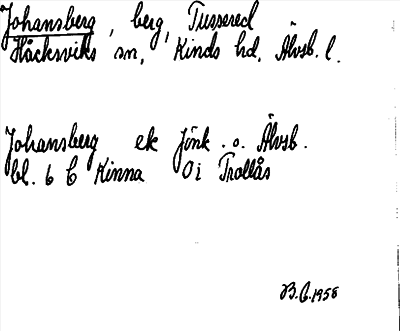 Johansberg, berg, Tussered
Håcksviks sn, Kinds hd, Älvsb. l.
Johansberg ek Jönk. o. Älvsb.
bl. 6 C Kinna Oi Trollås
B.C. 1958